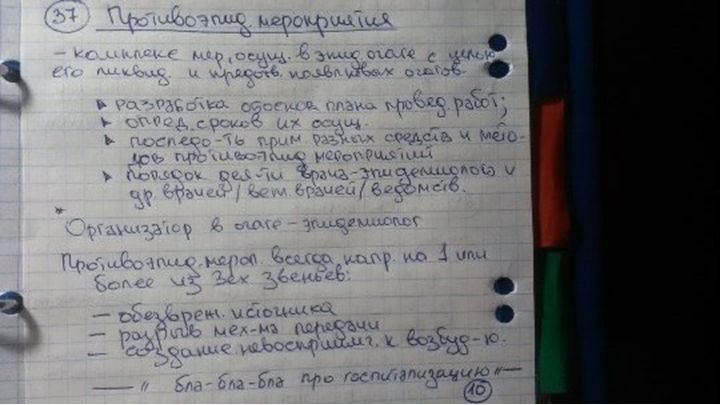 37 Противоэпид мероприятия
- комплекс мер, осущ. в эпид. очаге с целью
его ликвид. и предотв. появл. новых очагов.
▸ разработка обоснов плана провед. работ;
▸ опред. сроков их осущ.
▸ последо-ть прим разных средств и мето-
дов противоэпид мероприятий
▸ порядок дея-ти врача-эпидемиолога и
др. врачей / вет. врачей / ведомств.
* Организатор в очаге - эпидемиолог
Противоэпид. мероп. всегда напр. на 1 или
более из 3ех звеньев:
- обезвреж. источника
- разрыв мех-ма передачи
- создание невосприимч. к возбуд-ю.
— " бла-бла-бла про госпитализацию " —
10